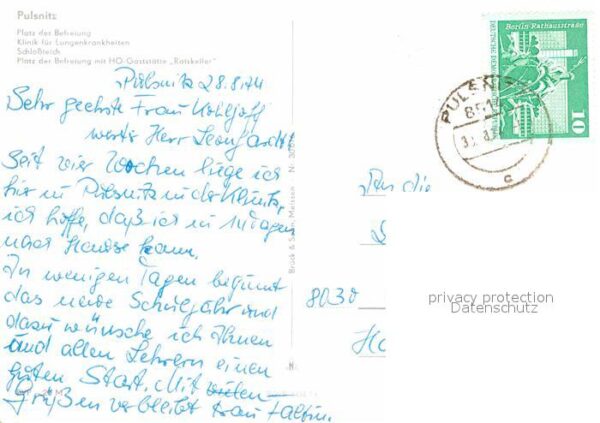 Pulsnitz
Platz der Befreiung
Klinik für Lungenkrankheiten
Schloßteich
Platz der Befreiung mit HO-Gaststätte „Ratskeller“
Berlin Rathausstraße
10
PULSNITZ
851
c
Pulsnitz 28.8.74
Sehr geehrte Frau
werter Herr
Seit vier Wochen liege ich
hier in Pulsnitz in der Klinik,
ich hoffe, daß ich in 14 Tagen
nach Hause kann.
In wenigen Tagen beginnt
das neue Schuljahr und
dazu wünsche ich Ihnen
und allen Lehrern einen
guten Start. Mit vielen
Grüßen verbleibt Frau
Brück & Sohn, Meissen
An die
8030
privacy protection
Datenschutz